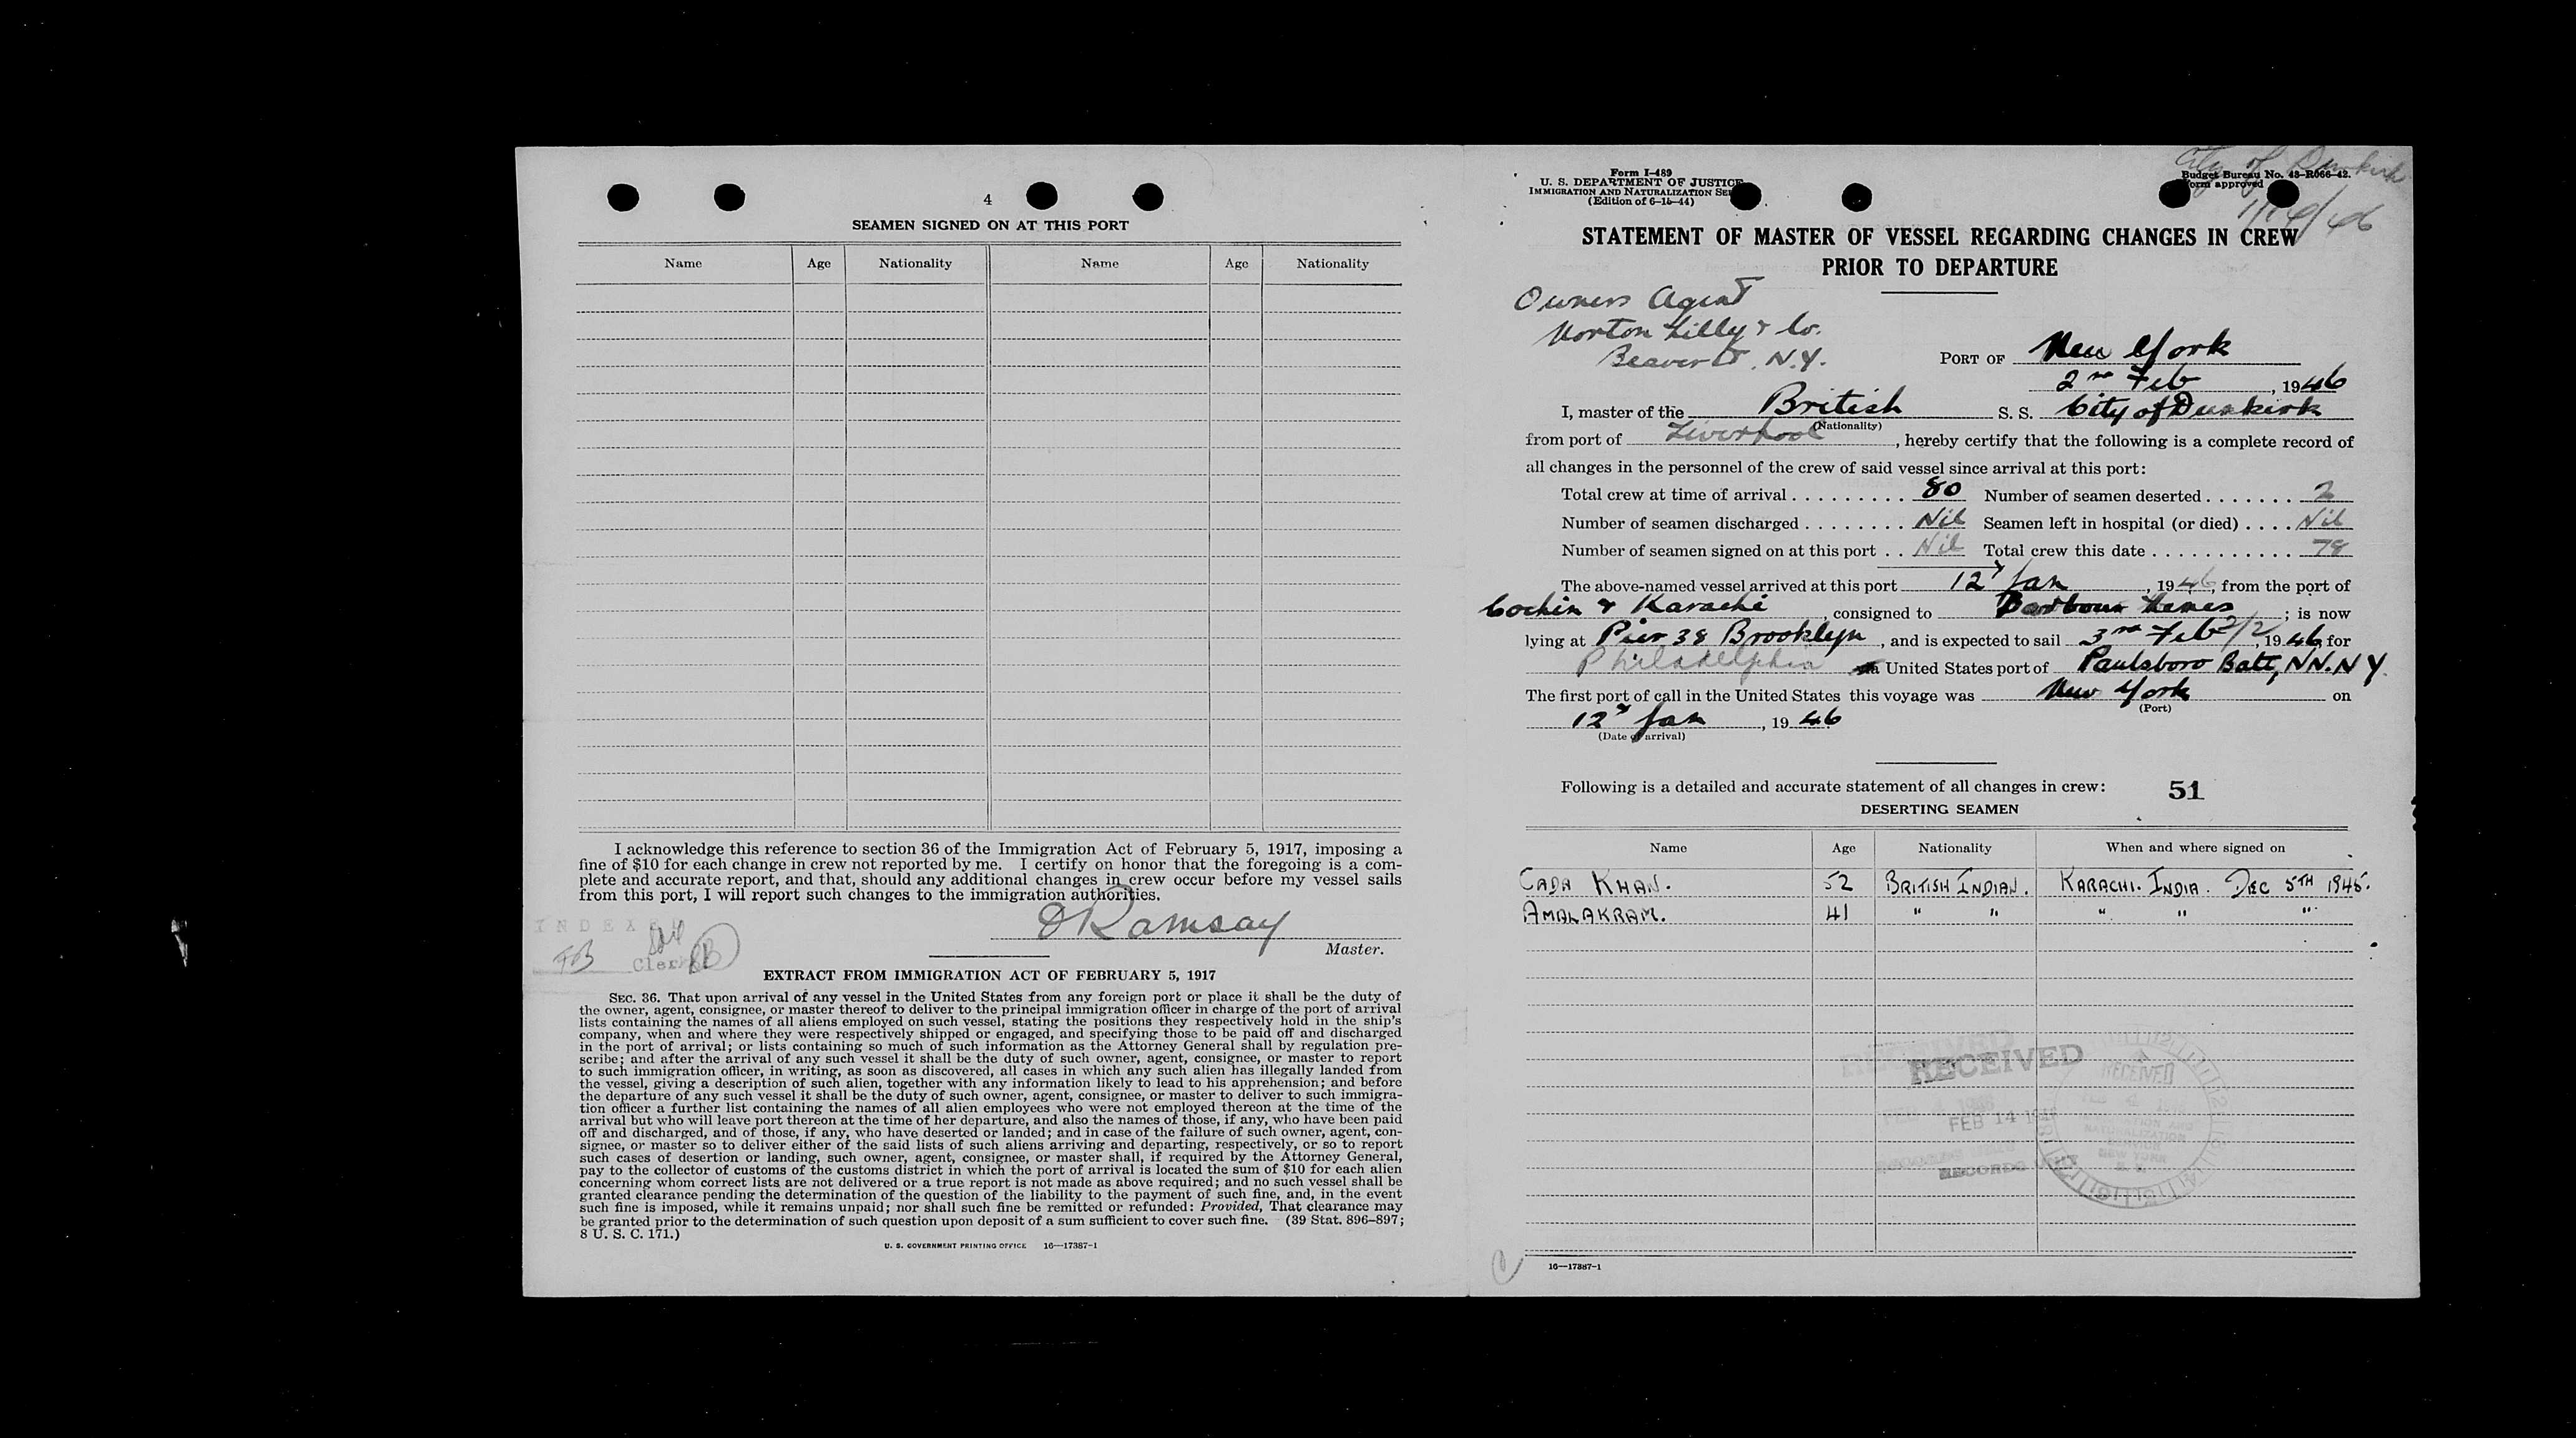 4
SEAMEN SIGNED ON AT THIS PORT
Name Age Nationality Name Age Nationality
I acknowledge this reference to section 36 of the Immigration Act of February 5, 1917, imposing a
fine of $10 for each change in crew not reported by me. I certify on honor that the foregoing is a com-
plete and accurate report, and that, should any additional changes in crew occur before my vessel sails
from this port, I will report such changes to the immigration authorities.
INDEXED
Ramsay
Master.
Clerk
EXTRACT FROM IMMIGRATION ACT OF FEBRUARY 5, 1917
SEC. 36. That upon arrival of any vessel in the United States from any foreign port or place it shall be the duty of
the owner, agent, consignee, or master thereof to deliver to the principal immigration officer in charge of the port of arrival
lists containing the names of all aliens employed on such vessel, stating the positions they respectively hold in the ship's
company, when and where they were respectively shipped or engaged, and specifying those to be paid off and discharged
in the port of arrival; or lists containing so much of such information as the Attorney General shall by regulation pre-
scribe; and after the arrival of any such vessel it shall be the duty of such owner, agent, consignee, or master to report
to such immigration officer, in writing, as soon as discovered, all cases in which any such alien has illegally landed from
the vessel, giving a description of such alien, together with any information likely to lead to his apprehension; and before
the departure of any such vessel it shall be the duty of such owner, agent, consignee, or master to deliver to such immigra-
tion officer a further list containing the names of all alien employees who were not employed thereon at the time of the
arrival but who will leave port thereon at the time of her departure, and also the names of those, if any, who have been paid
off and discharged, and of those, if any, who have deserted or landed; and in case of the failure of such owner, agent, con-
signee, or master so to deliver either of the said lists of such aliens arriving and departing, respectively, or so to report
such cases of desertion or landing, such owner, agent, consignee, or master shall, if required by the Attorney General,
pay to the collector of customs of the customs district in which the port of arrival is located the sum of $10 for each alien
concerning whom correct lists are not delivered or a true report is not made as above required; and no such vessel shall be
granted clearance pending the determination of the question of the liability to the payment of such fine, and, in the event
such fine is imposed, while it remains unpaid; nor shall such fine be remitted or refunded: Provided, That clearance may
be granted prior to the determination of such question upon deposit of a sum sufficient to cover such fine. (39 Stat. 896–897;
8 U. S. C. 171.)
U. S. GOVERNMENT PRINTING OFFICE 16—17387-1
City of Dunkirk
Form I-489
U. S. DEPARTMENT OF JUSTICE
IMMIGRATION AND NATURALIZATION SER
(Edition of 6-15-44)
Budget Bureau No. 43-R066-42.
Form approved
STATEMENT OF MASTER OF VESSEL REGARDING CHANGES IN CREW
PRIOR TO DEPARTURE
Owners Agent
Norton Lilly & Co.
Beaver St. N.Y.
PORT OF New York
2nd Feb, 1946
I, master of the British S. S. City of Dunkirk
(Nationality)
from port of Liverpool, hereby certify that the following is a complete record of
all changes in the personnel of the crew of said vessel since arrival at this port:
Total crew at time of arrival 80 Number of seamen deserted 2
Number of seamen discharged Nil Seamen left in hospital (or died) Nil
Number of seamen signed on at this port Nil Total crew this date 78
The above-named vessel arrived at this port 12 Jan, 1946, from the port of
Cochin & Karachi, consigned to ; is now
lying at Pier 38 Brooklyn, and is expected to sail 3rd Feb 2/2, 1946, for
Philadelphia United States port of Paulsboro Balt, NN. NY.
The first port of call in the United States this voyage was New York on
(Port)
12 Jan, 1946
(Date of arrival)
Following is a detailed and accurate statement of all changes in crew: 51
DESERTING SEAMEN
Name Age Nationality When and where signed on
CADA KHAN. 52 BRITISH INDIAN. KARACHI. INDIA. DEC 5TH 1945.
AMALAKRAM. 41 " " " " "
RECEIVED
FEB 14 1946
RECORDS UNIT
RECEIVED
16—17387-1